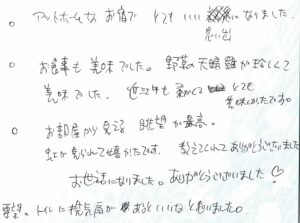 ○ アットホームなお宿で とてもいい 思い出 になりました。
○ お食事も美味でした。野草の天ぷらが珍しくて
美味でした。 も柔かくて とても
美味しかったです。
○ お部屋から見える 眺望が最高。
虹が見られて嬉かったです。 教えてくれてありがとうございました
お世話になりました。ありがとうございました♡
要望。トイレに換気扇が あるといいなと思いました。